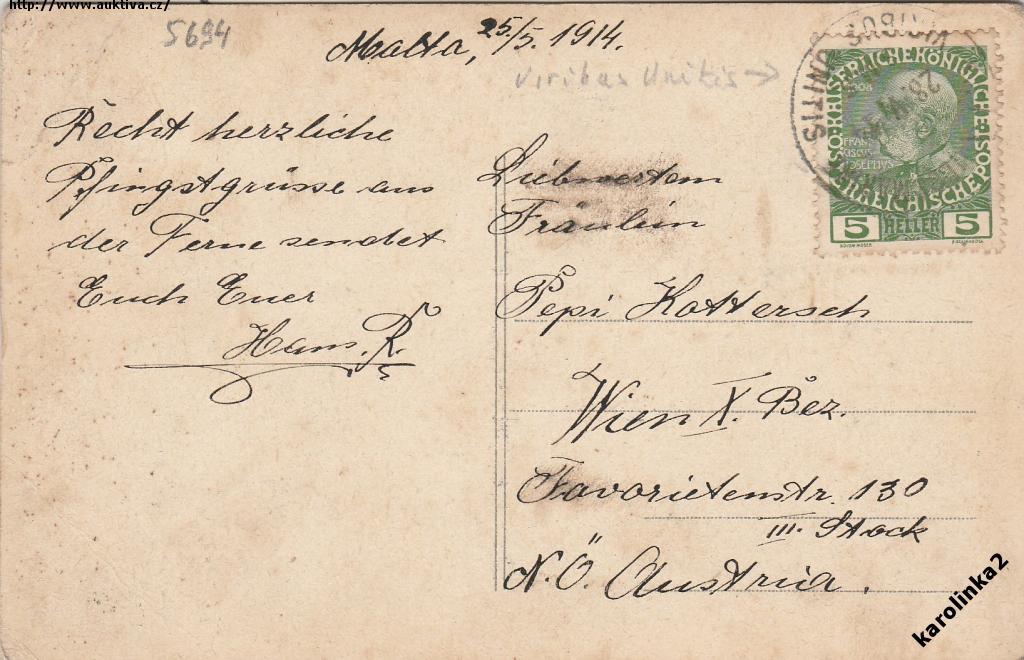 http://www.auktiva.cz/
5694
Malta, 25/5. 1914.
Viribus Unitis →
Recht herzliche
Pfingstgrüsse aus
der Ferne sendet
Euch Euer
Hans. R.
VIRIBUS UNITIS
KAISERLICHE KÖNIGLICHE
ÖSTERREICHISCHE POST
5 HELLER 5
Liebwertem
Fräulein
Pepi Kottersch
Wien X. Bez.
Favorietenstr. 130
III. Stock
N.Ö. Austria.
karolinka2